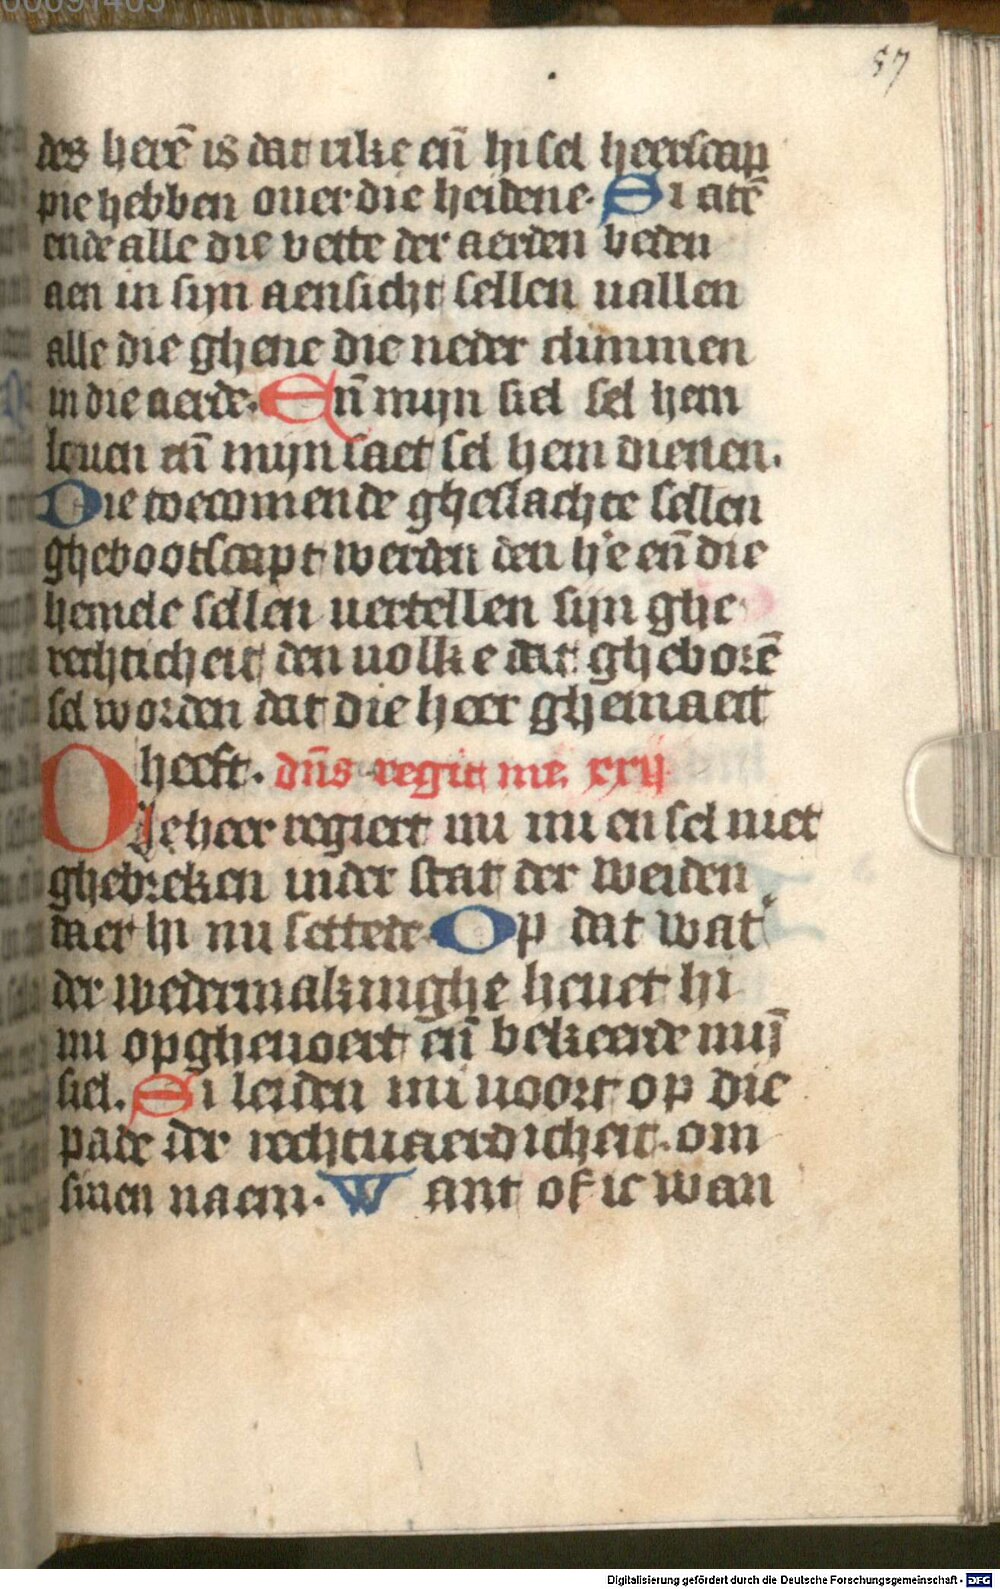 57
des herē is dat rike eñ hi sel heerscap
pie hebben ouer die heidene. Si atē
ende alle die vette der aerden beden
aen in sijn aensicht sellen uallen
alle die ghene die neder climmen
in die aerde. Eñ mijn siel sel hem
leuen eñ mijn saet sel hem dienen.
Die toecomende gheslachte sellen
ghebootscapt werden den h'e eñ die
hemele sellen uertellen sijn ghe
rechticheit den uolke dat gheborē
sel worden dat die heer ghemaect
heeft. dn̄s regit me. xxij
Die heer regiert mi mi en sel niet
ghebreken in der stat der weiden
daer hi mi settede Op dat wat'
der wedermakinghe heuet hi
mi opgheuoert eñ bekeerde mij̄
siel. Si leiden mi uoort op die
pade der rechtuaerdicheit. om
sinen naem. Want of ic wan
Digitalisierung gefördert durch die Deutsche Forschungsgemeinschaft - DFG